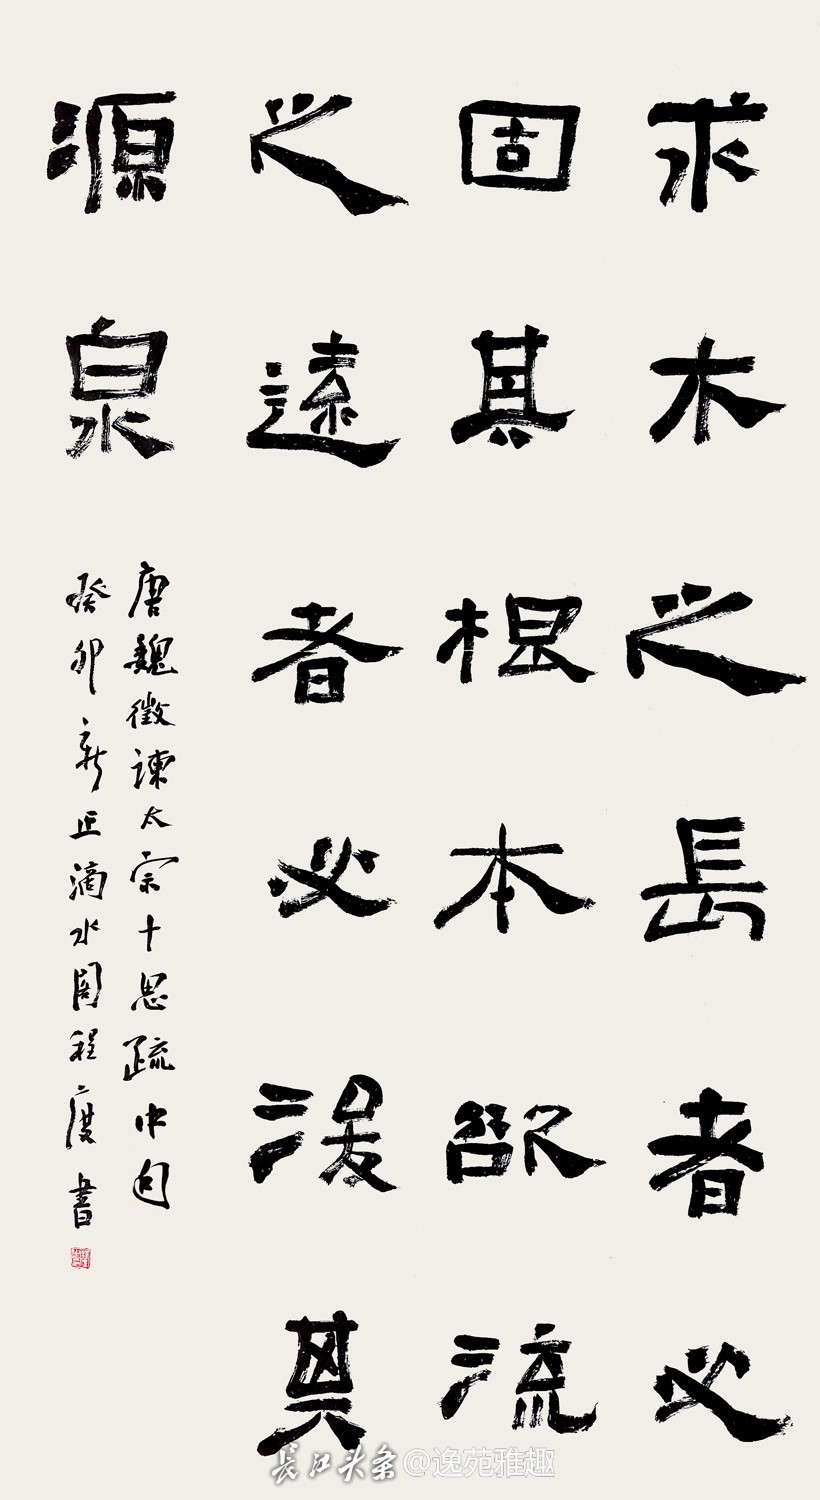 求木之長者必
固其根本欲流
之遠者必浚其
源泉
唐魏徵諫太宗十思疏中句
癸卯新正滴水閣程度書
长江头条@逸苑雅趣